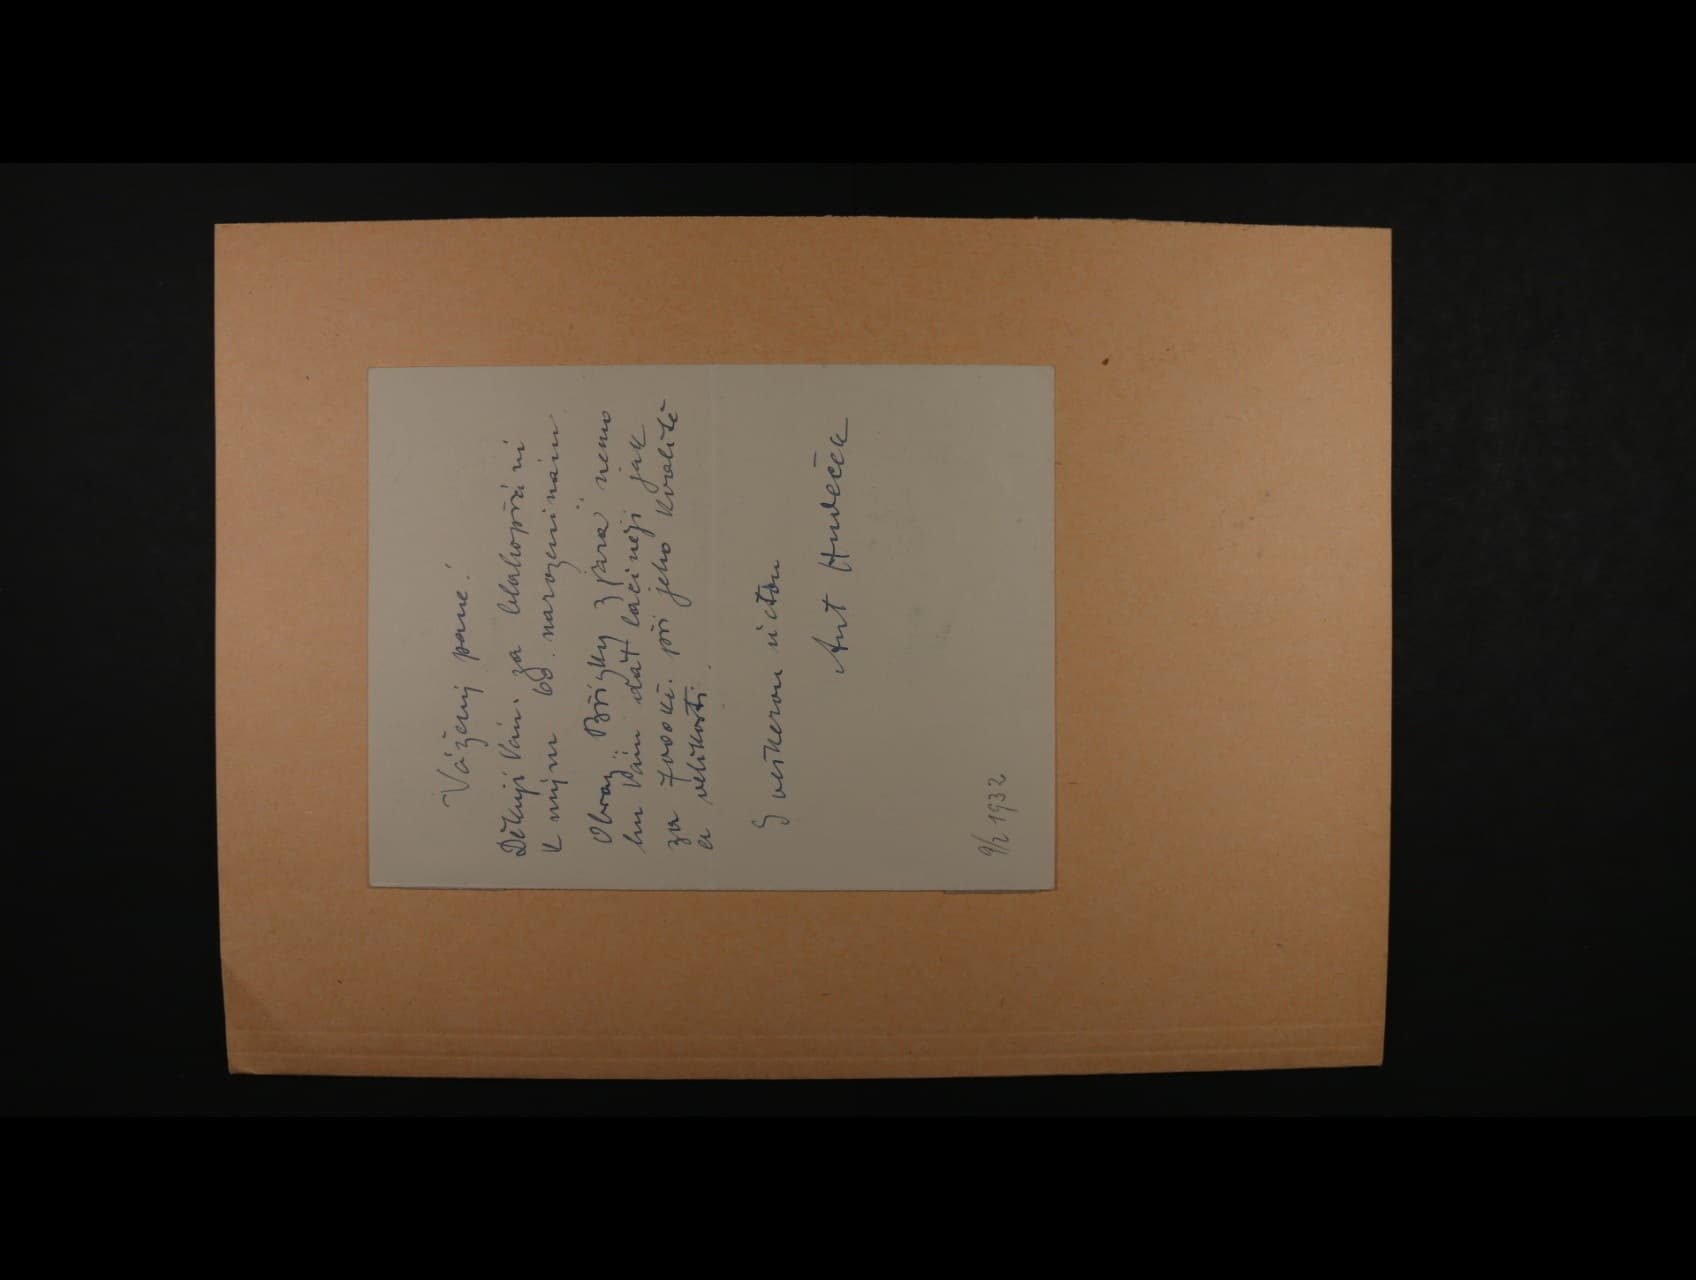 Vážený pane!
Děkuji Vám za blahopřání
k mým 60. narozeninám
Obraz „Břízky z jara" nemo
hu Vám dát laciněji jak
za 7000 Kč. při jeho kvalitě
a velikosti.
S veškerou úctou
Ant Hudeček
9/2 1932